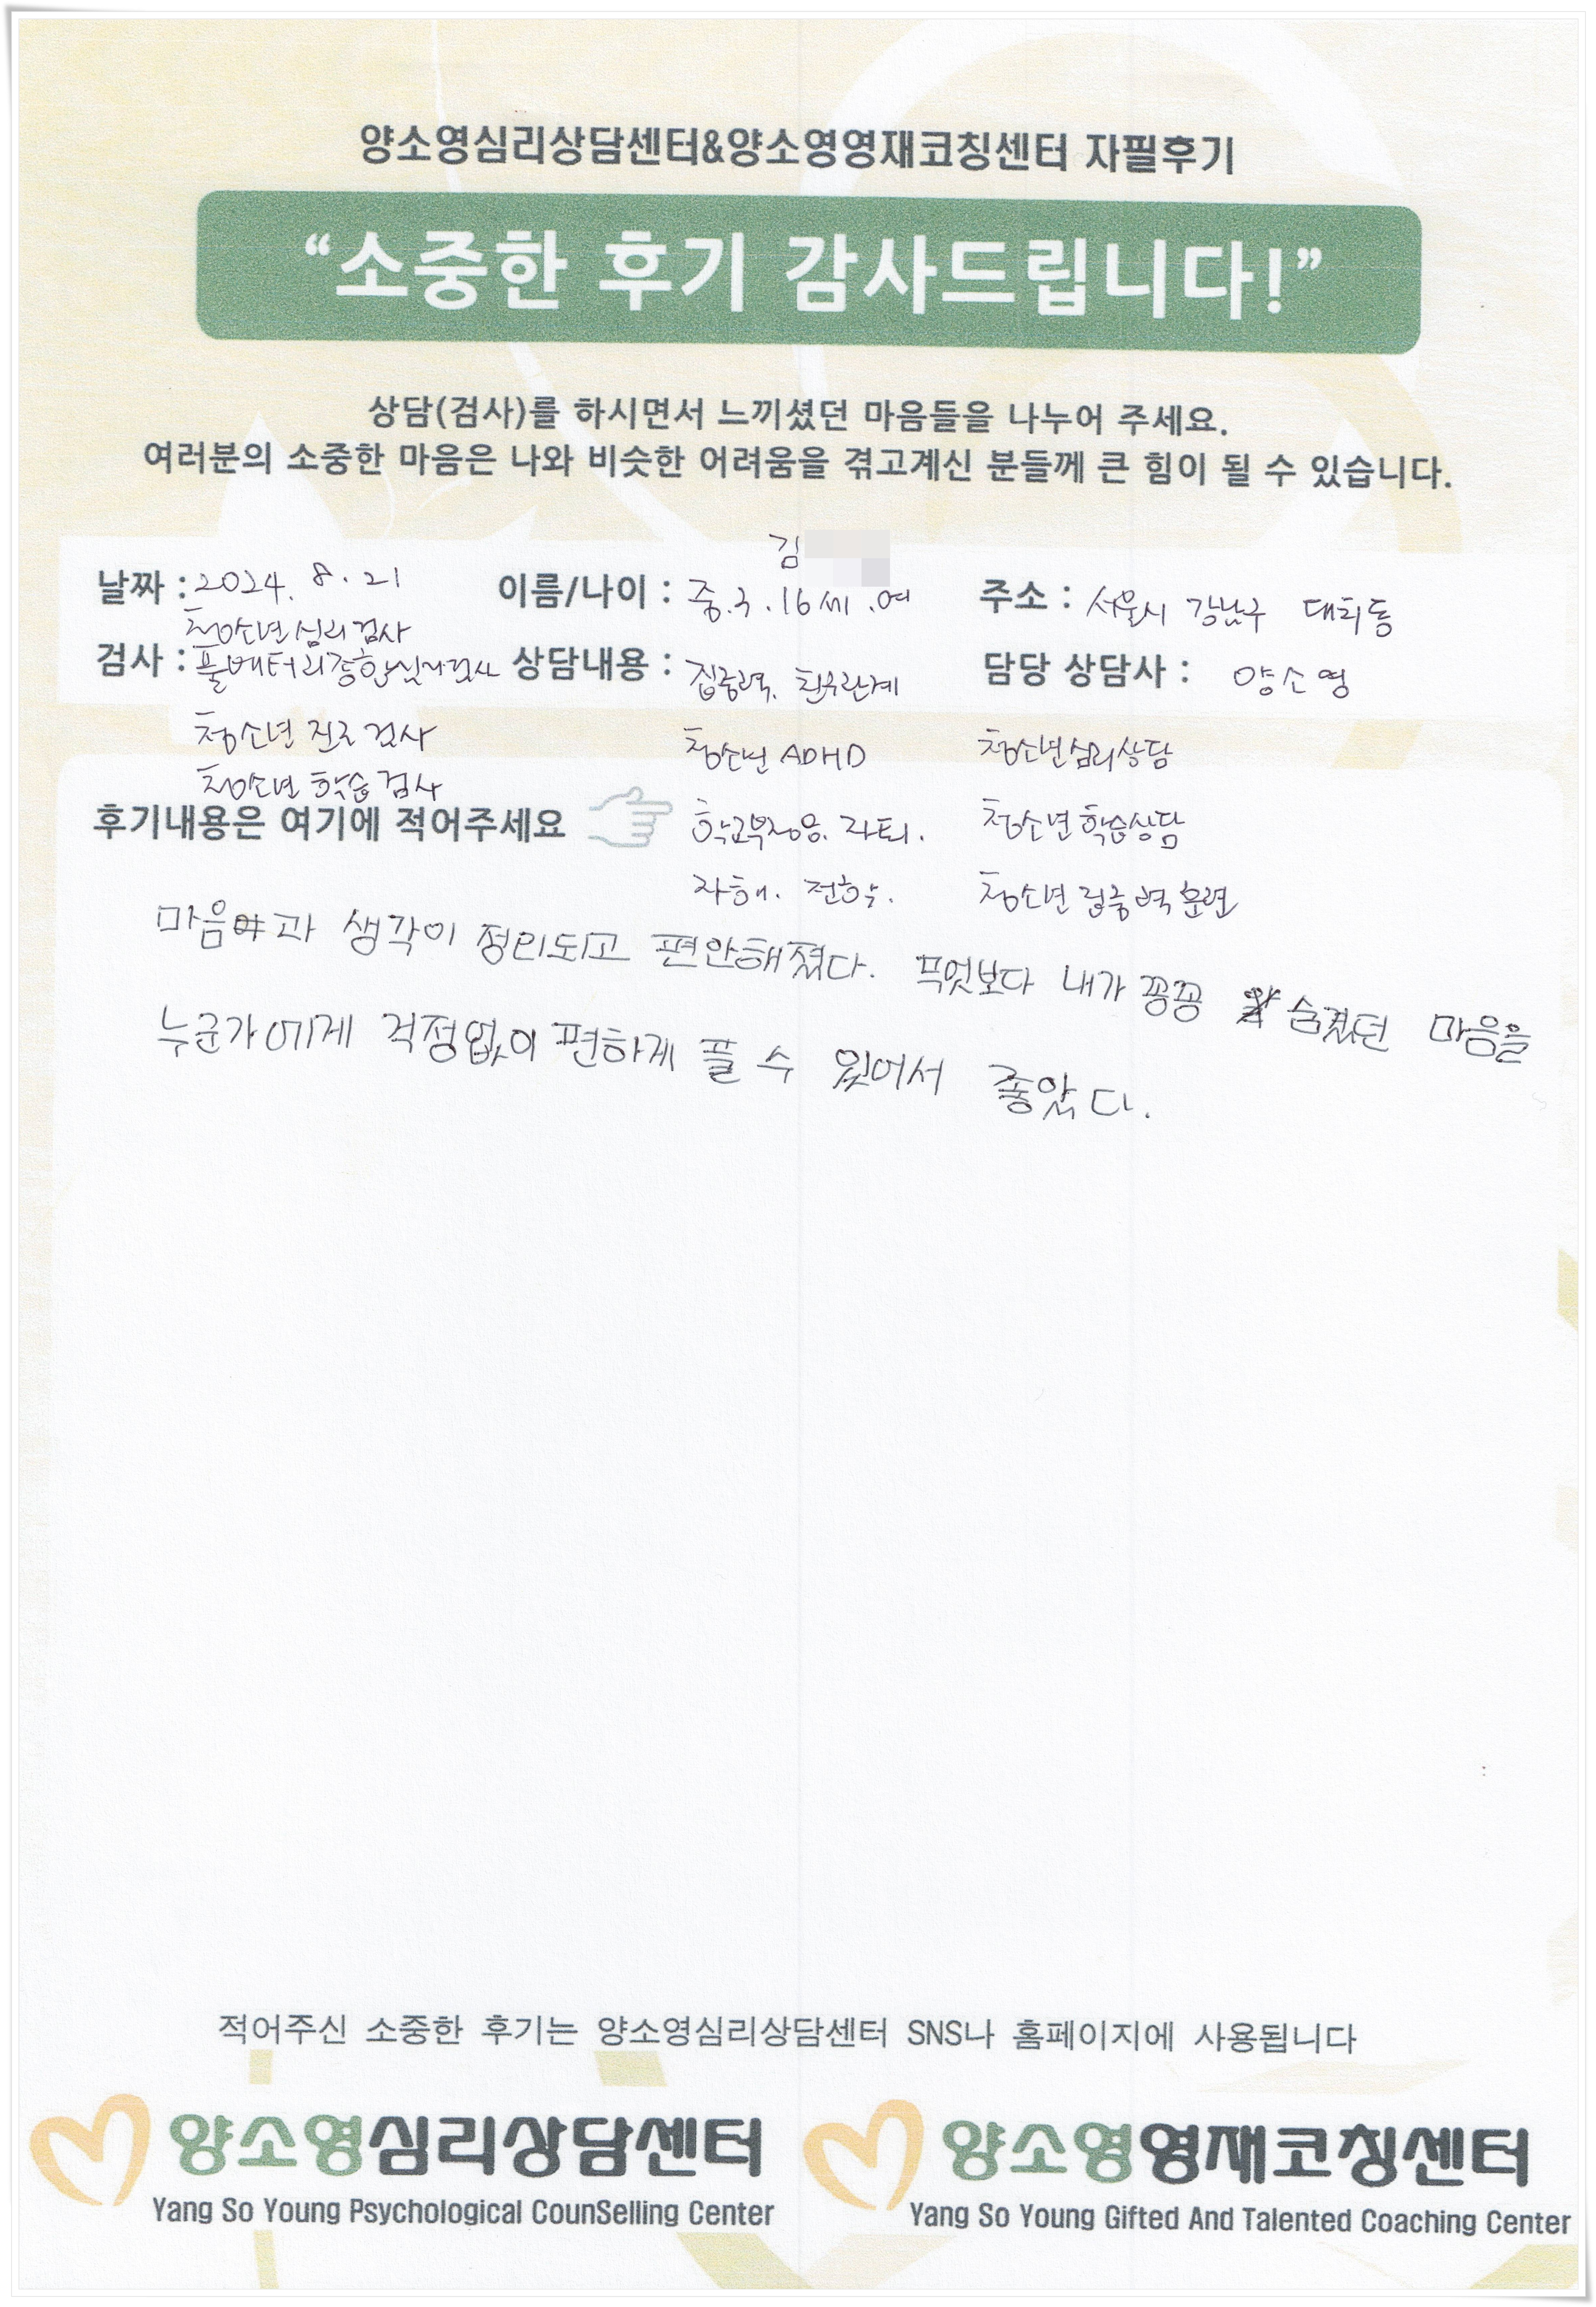 양소영심리상담센터&양소영영재코칭센터 자필후기
“소중한 후기 감사드립니다!”
상담(검사)를 하시면서 느끼셨던 마음들을 나누어 주세요.
여러분의 소중한 마음은 나와 비슷한 어려움을 겪고계신 분들께 큰 힘이 될 수 있습니다.
김
날짜 : 2024. 8. 21 이름/나이 : 중.3.16세.여 주소 : 서울시 강남구 대치동
청소년 심리검사
검사 : 풀배터리종합심리검사 상담내용 : 집중력. 친우관계 담당 상담사 : 양소영
청소년 진로검사 청소년 ADHD 청소년심리상담
청소년 학습검사
후기내용은 여기에 적어주세요 학교부적응. 자퇴. 청소년학습상담
자해. 전학. 청소년 집중력 훈련
마음과 생각이 정리되고 편안해졌다. 무엇보다 내가 꽁꽁 숨겼던 마음을
누군가에게 걱정없이 편하게 풀 수 있어서 좋았다.
적어주신 소중한 후기는 양소영심리상담센터 SNS나 홈페이지에 사용됩니다
양소영심리상담센터 양소영영재코칭센터
Yang So Young Psychological CounSelling Center Yang So Young Gifted And Talented Coaching Center